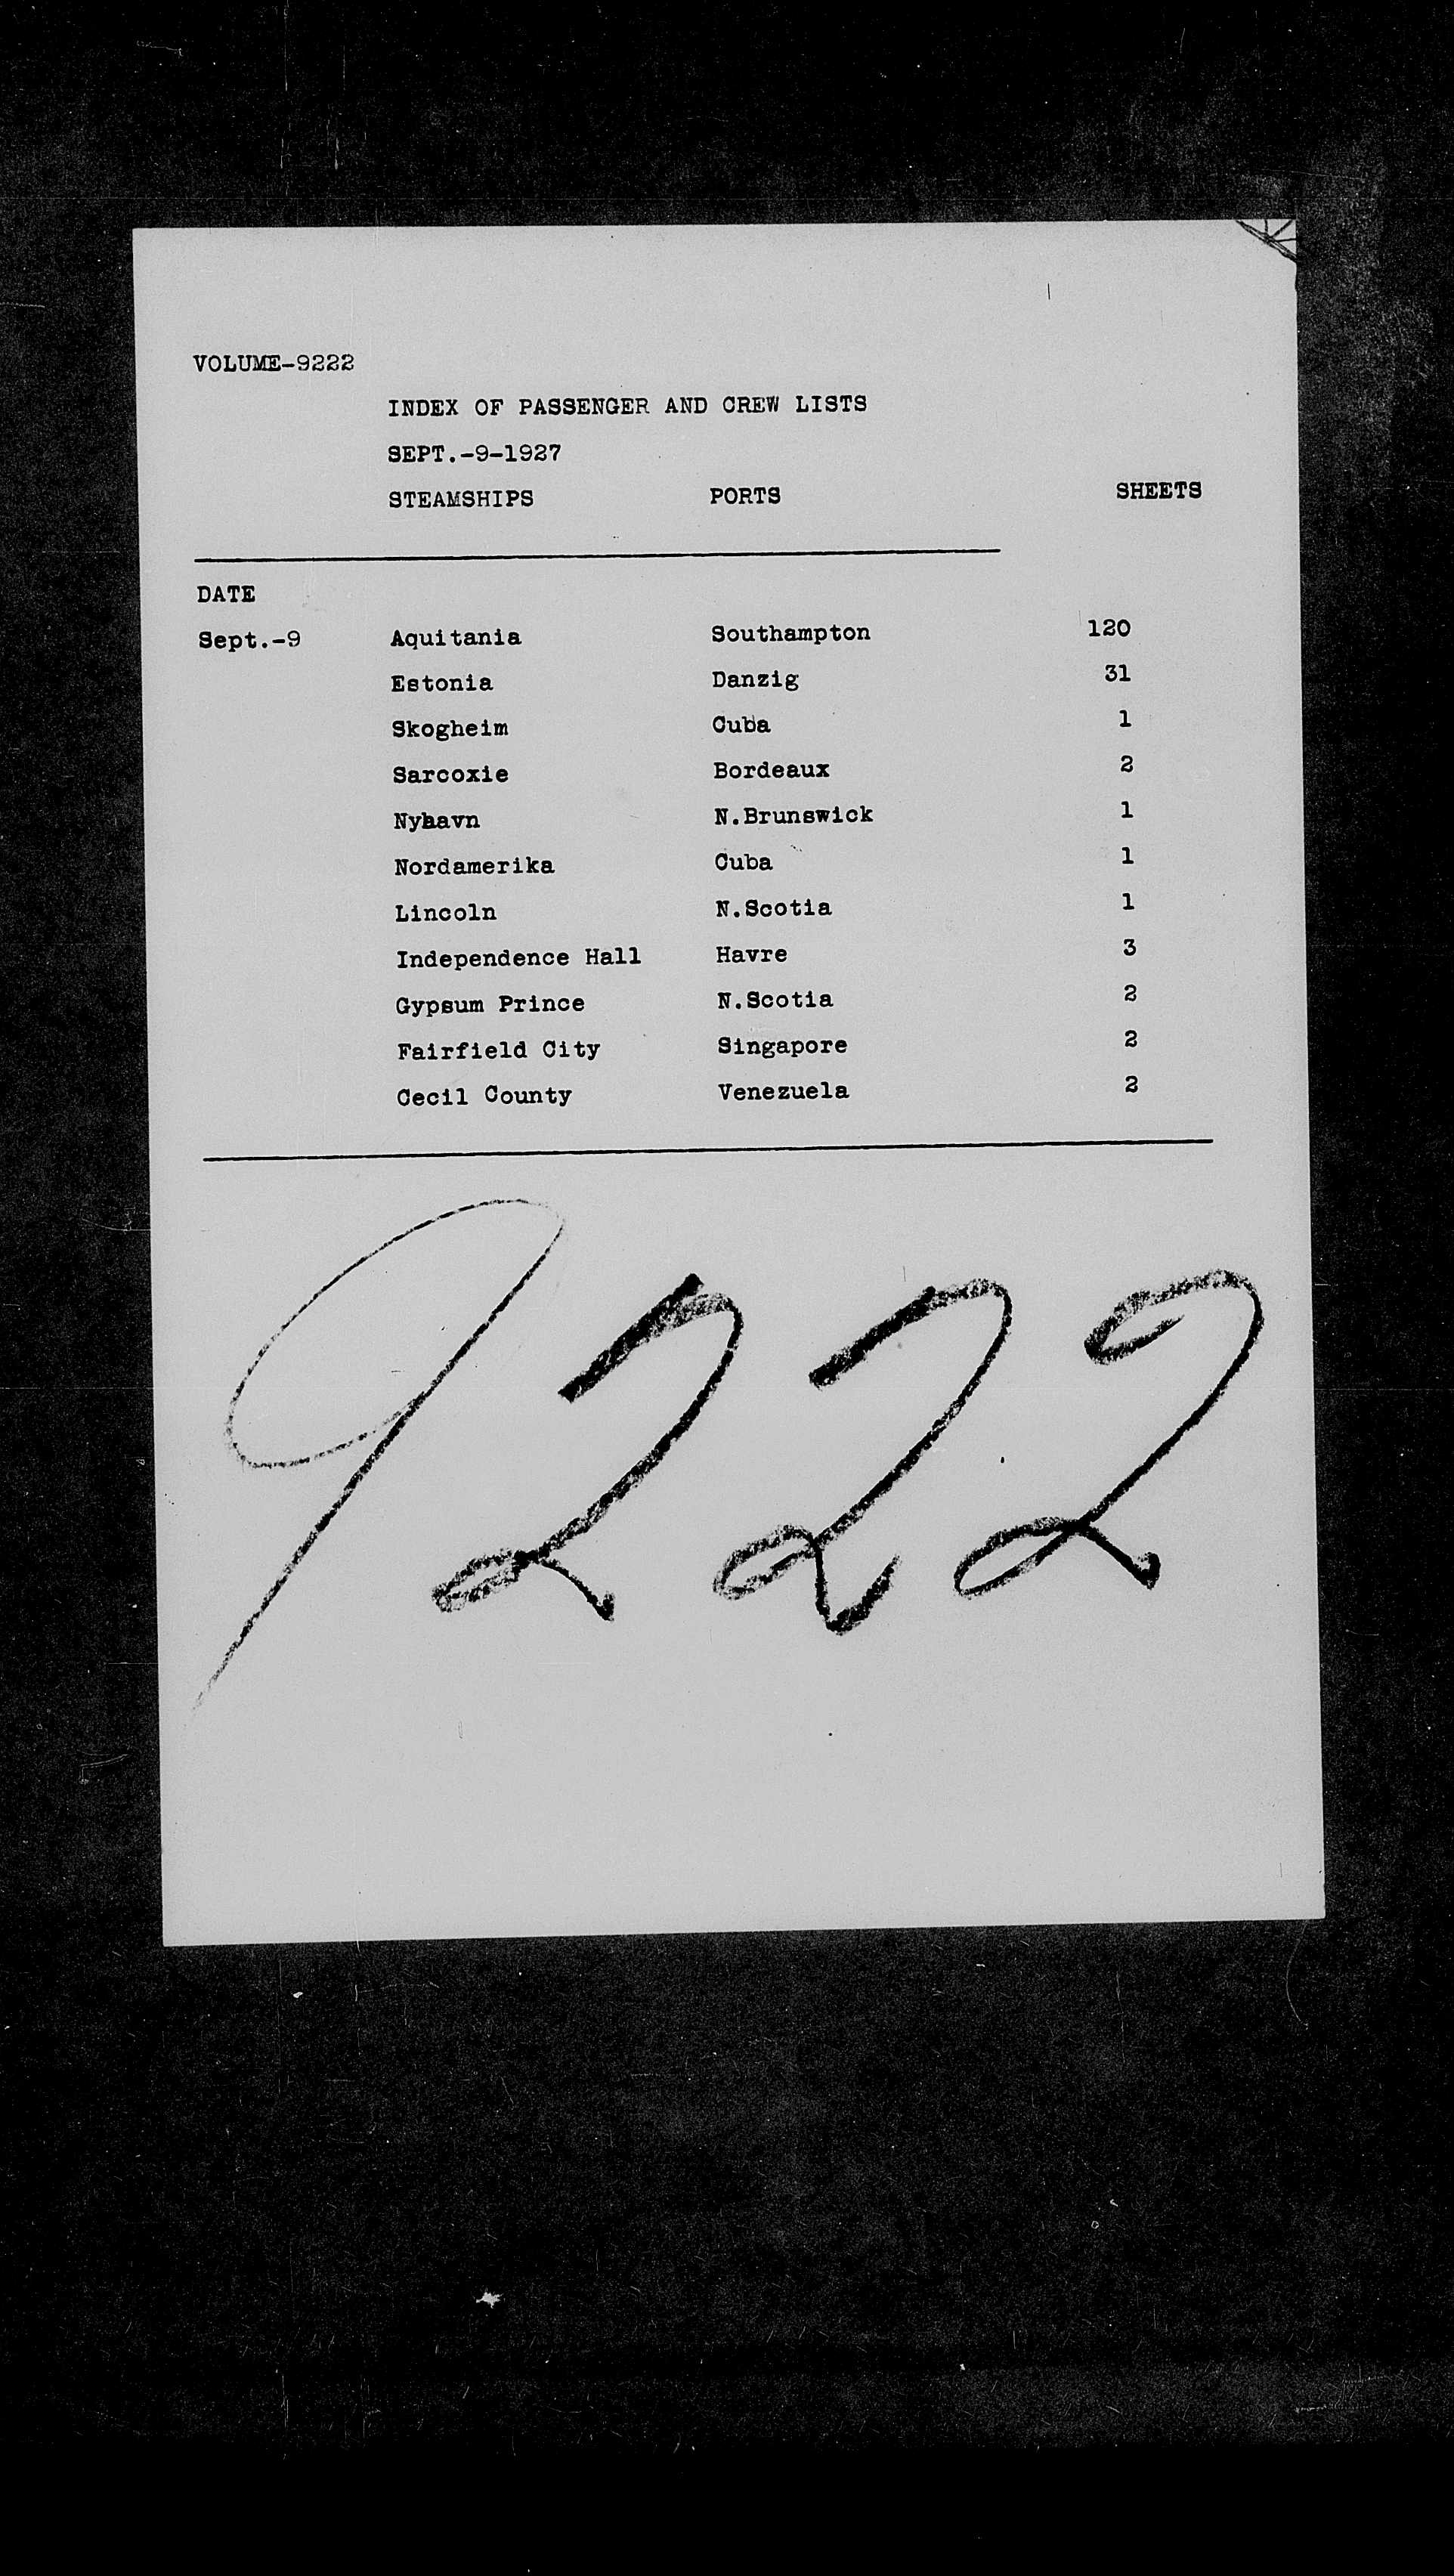 VOLUME-9222
INDEX OF PASSENGER AND CREW LISTS
SEPT.-9-1927
STEAMSHIPS PORTS SHEETS
DATE
Sept.-9 Aquitania Southampton 120
Estonia Danzig 31
Skogheim Cuba 1
Sarcoxie Bordeaux 2
Nyhavn N.Brunswick 1
Nordamerika Cuba 1
Lincoln N.Scotia 1
Independence Hall Havre 3
Gypsum Prince N.Scotia 2
Fairfield City Singapore 2
Cecil County Venezuela 2
9222